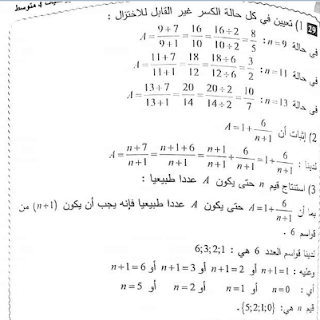 29 1) تعيين في كل حالة الكسر غير القابل للاختزال :
في حالة n=9 : A = 9+7/9+1 = 16/10 = 16÷2/10÷2 = 8/5
في حالة n=11 : A = 11+7/11+1 = 18/12 = 18÷6/12÷6 = 3/2
في حالة n=13 : A = 13+7/13+1 = 20/14 = 20÷2/14÷2 = 10/7
2) إثبات أن A = 1 + 6/n+1
لدينا : A = n+7/n+1 = n+1+6/n+1 = n+1/n+1 + 6/n+1 = 1 + 6/n+1
3) استنتاج قيم n حتى يكون A عددا طبيعيا :
بما أن A = 1 + 6/n+1 حتى يكون A عددا طبيعيا فإنه يجب أن يكون (n+1) من
قواسم 6 .
لدينا قواسم العدد 6 هي : 6;3;2;1
وعليه : n+1=1 أو n+1=2 أو n+1=3 أو n+1=6
أي : n=0 أو n=1 أو n=2 أو n=5
قيم n هي: {5;2;1;0} .